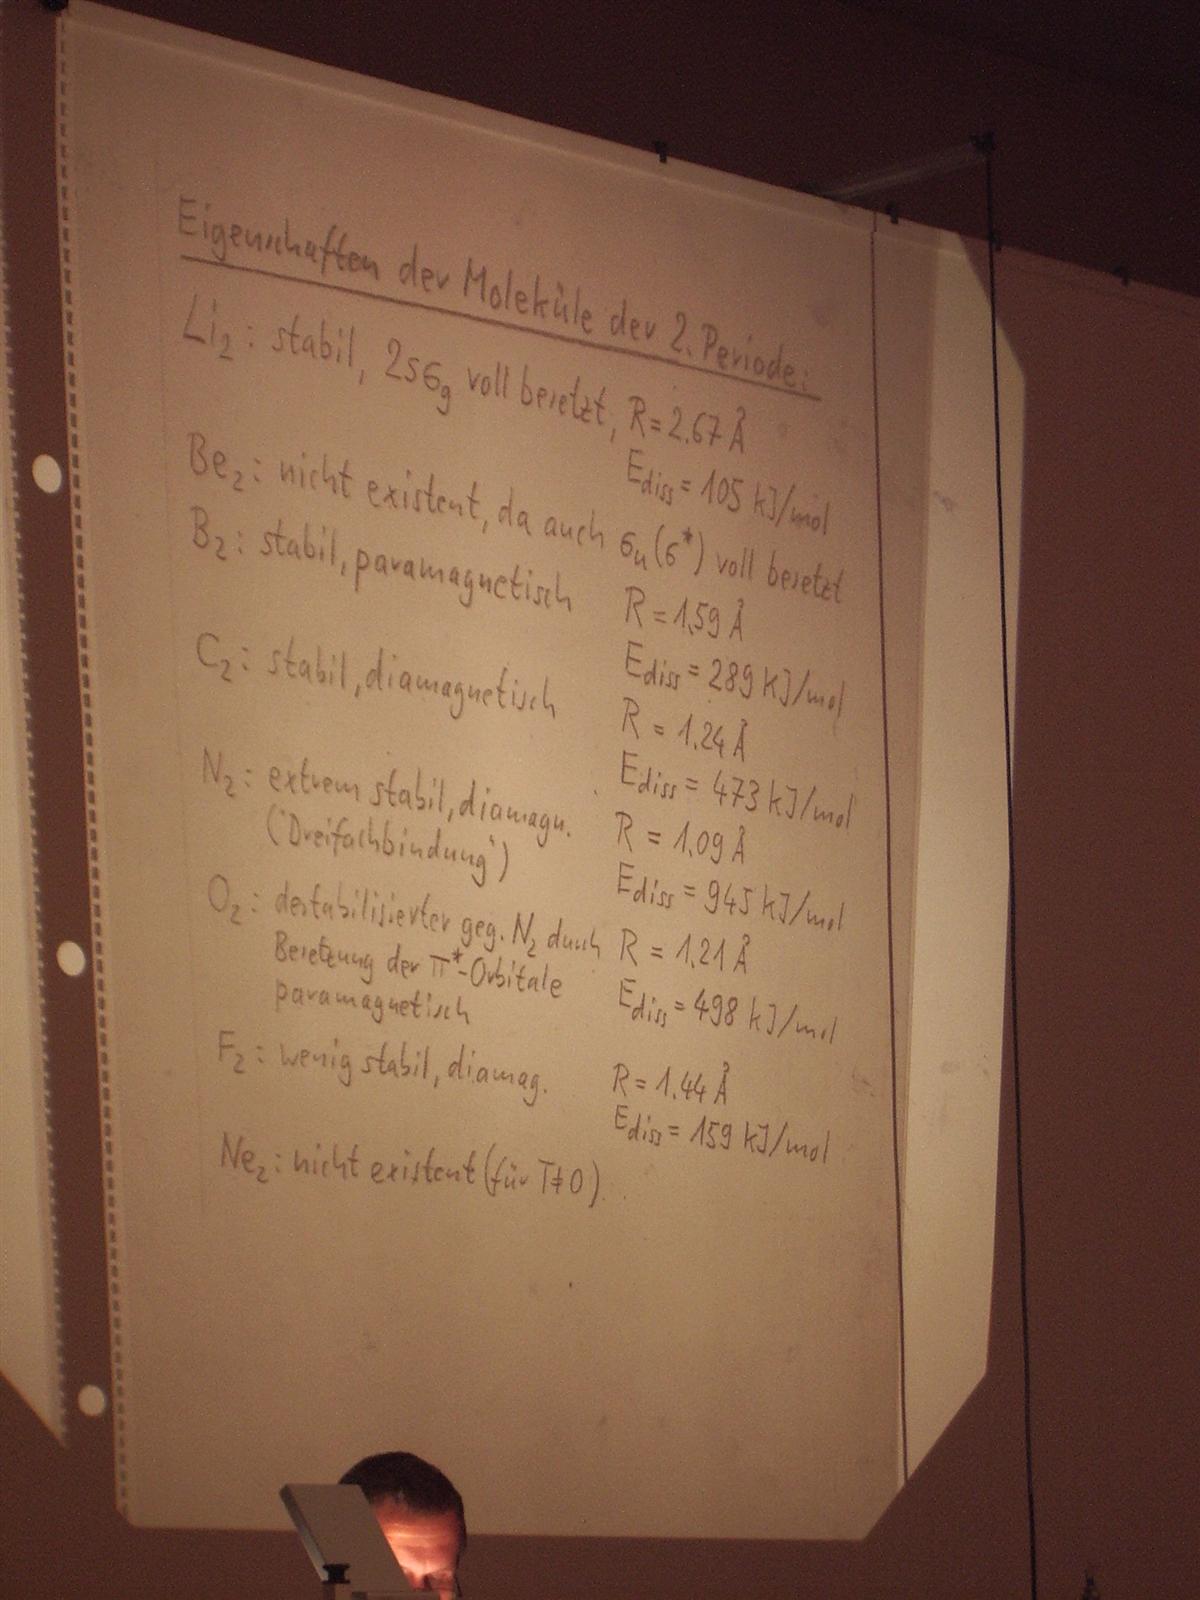 Eigenschaften der Moleküle der 2. Periode:
Li₂: stabil, 2sσg voll besetzt, R = 2.67 Å
Ediss = 105 kJ/mol
Be₂: nicht existent, da auch σu(σ*) voll besetzt
B₂: stabil, paramagnetisch R = 1.59 Å
Ediss = 289 kJ/mol
C₂: stabil, diamagnetisch R = 1.24 Å
Ediss = 473 kJ/mol
N₂: extrem stabil, diamagn. R = 1.09 Å
("Dreifachbindung") Ediss = 945 kJ/mol
O₂: destabilisierter geg. N₂ durch R = 1.21 Å
Besetzung der π*-Orbitale Ediss = 498 kJ/mol
paramagnetisch
F₂: wenig stabil, diamag. R = 1.44 Å
Ediss = 159 kJ/mol
Ne₂: nicht existent (für T≠0)